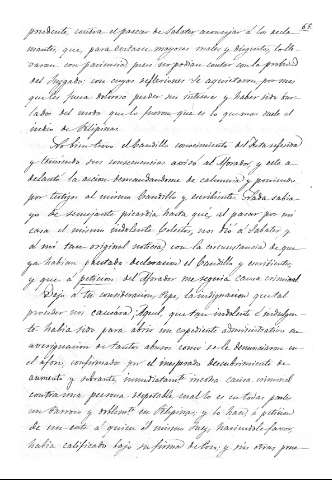 63.
procedente, contra el parecer de Sabater aconsejar á los recla-
mantes que, para evitarse mayores males y disgustos, lo lle-
varan con paciencia pues no podian contar con la probidad
del Juzgado: con cuyas reflecsiones se aquietaron, por mas
que les fuera doloroso perder sus intereses y haber sido bur-
lados del modo que lo fueron que es lo que mas suele el
indio de Filipinas.
el Caudillo conocimiento del
y temiendo sus consecuencias avisó al Aforador, y este a-
delantó la accion demandandome de calumnia y poniendo
por testigos al mismo Caudillo y escribiente. Nada sabia
yo de semejante picardia hasta que, al pasar por mi
casa el mismo indolente Celestino, nos dió á Sabater y
á mi tan original noticia con la circunstancia de que
ya habian prestado declaracion el Caudillo y escribientes,
y que á peticion del Aforador me seguia causa criminal
Dejo á tu consideracion, Pepe, la indignacion que tal
proceder nos causará. Aquel, que tan indolente é indulgen-
te habia sido para abrir un expediente administrativo en
averiguacion de tantos abusos como se le denunciaron en
el aforo, confirmados por el inesperado descubrimiento de
aumento y sobrante, inmediatamte. incoha causa criminal
contra una persona respetable cual lo es en todas partes
un Parroco y en Filipinas, y lo hace á peticion
de un ente á quien el mismo Juez, haciendole favor,
habia calificado bajo su firma de y sin otras prue-